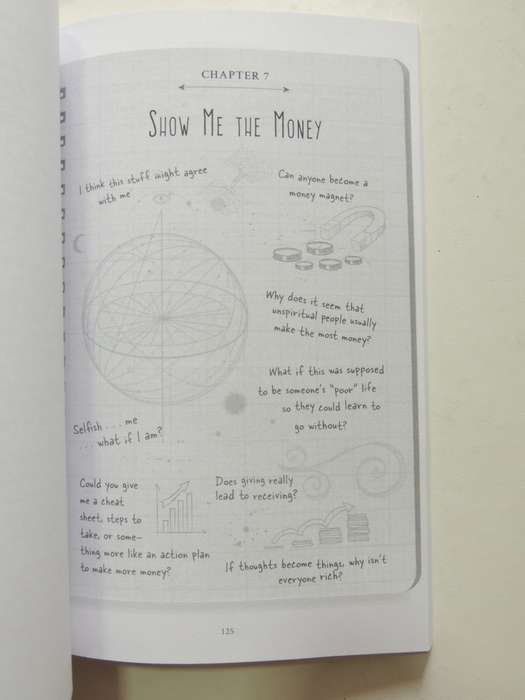 CHAPTER 7
SHOW ME THE MONEY
I think this stuff might agree
with me
Can anyone become a
money magnet?
Why does it seem that
unspiritual people usually
make the most money?
What if this was supposed
to be someone's "poor" life
so they could learn to
go without?
Selfish . . . me
. . . what if I am?
Could you give
me a cheat
sheet, steps to
take, or some-
thing more like an action plan
to make more money?
Does giving really
lead to receiving?
If thoughts become things, why isn't
everyone rich?
125